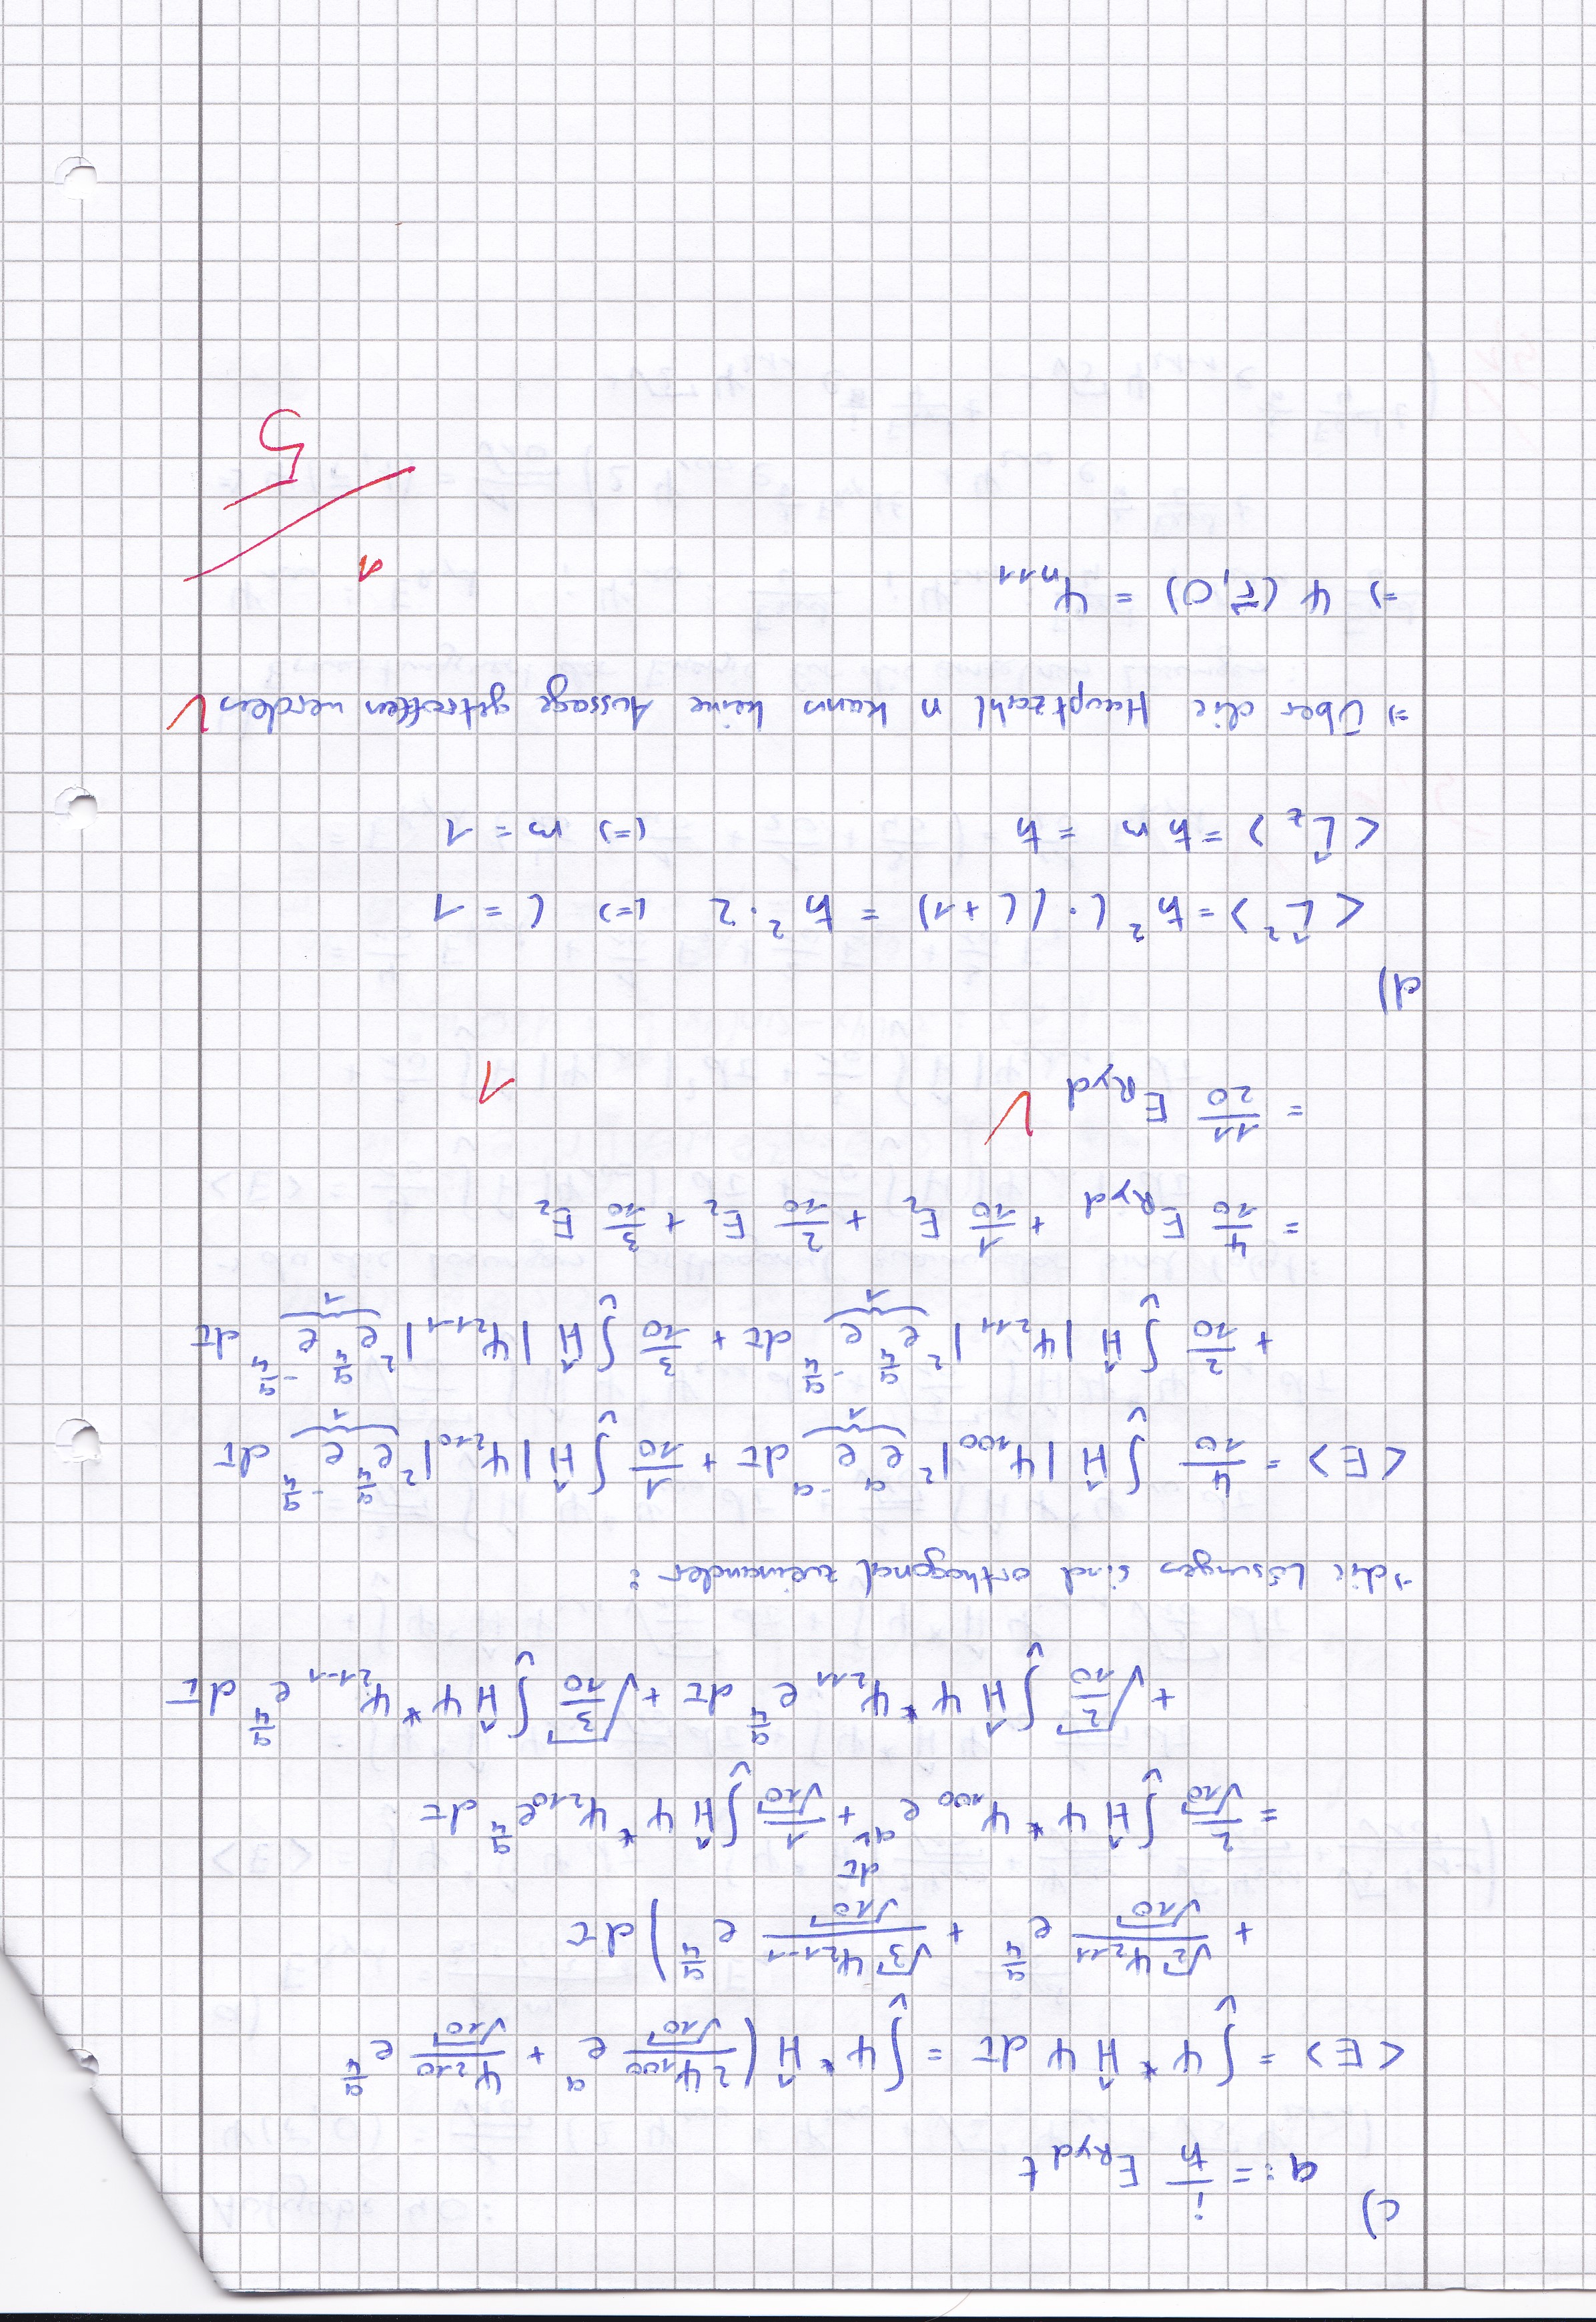 c)
a := i/ħ E_Ryd t
<E> = ∫_V Ψ* Ĥ Ψ dτ = ∫_V Ψ* Ĥ ( 2Ψ_100/√10 e^a + Ψ_210/√10 e^(a/4)
+ √2 Ψ_211/√10 e^(a/4) + √3 Ψ_21-1/√10 e^(a/4) ) dτ
= 2/√10 ∫_V Ĥ Ψ* Ψ_100 e^a dτ + 1/√10 ∫_V Ĥ Ψ* Ψ_210 e^(a/4) dτ
+ √(2/10) ∫_V Ĥ Ψ* Ψ_211 e^(a/4) dτ + √(3/10) ∫_V Ĥ Ψ* Ψ_21-1 e^(a/4) dτ
→ die Lösungen sind orthogonal zueinander:
<E> = 4/10 ∫_V Ĥ |Ψ_100|² e^a e^-a dτ + 1/10 ∫_V Ĥ |Ψ_210|² e^(a/4) e^(-a/4) dτ
1 1
+ 2/10 ∫_V Ĥ |Ψ_211|² e^(a/4) e^(-a/4) dτ + 3/10 ∫_V Ĥ |Ψ_21-1|² e^(a/4) e^(-a/4) dτ
1 1
= 4/10 E_Ryd + 1/10 E_2 + 2/10 E_2 + 3/10 E_2
= 11/20 E_Ryd ✓
1
d)
<L̂²> = ħ² l·(l+1) = ħ²·2 (=) l = 1
<L̂_z> = ħ m = ħ (=) m = 1
=> Über die Hauptzahl n kann keine Aussage getroffen werden ✓
=> Ψ(r⃗,0) = Ψ_n11
1
5